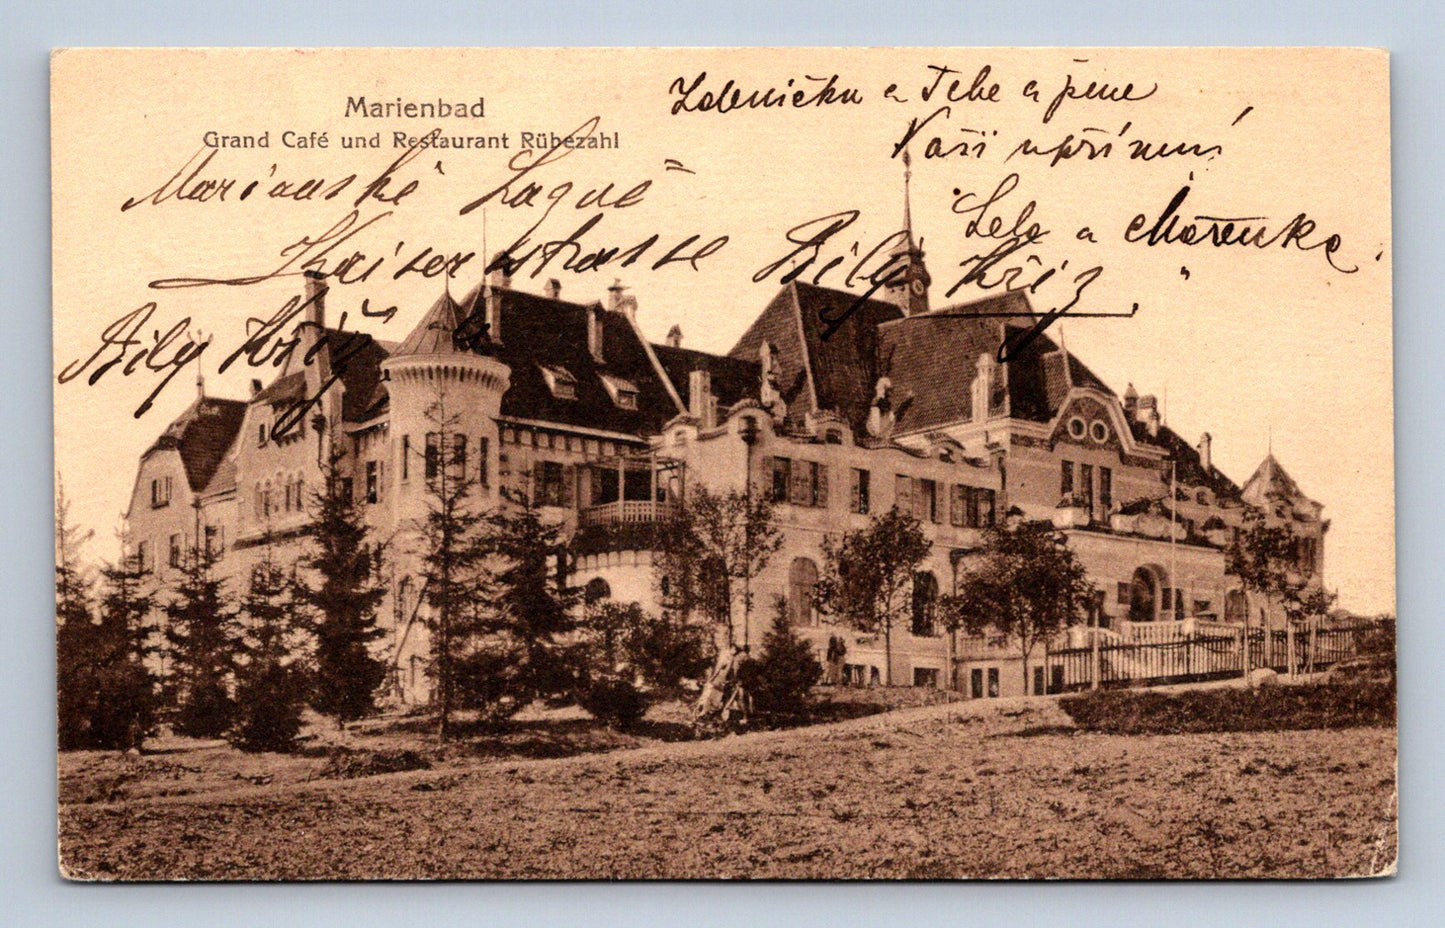 Marienbad
Grand Café und Restaurant Rübezahl
Zdeničku a Tebe a
Vaši upřímní
Lela a Mařenka.
Marianské Lázně =
Kaiserstrasse Bílý Kříž.
Bílý Kříž